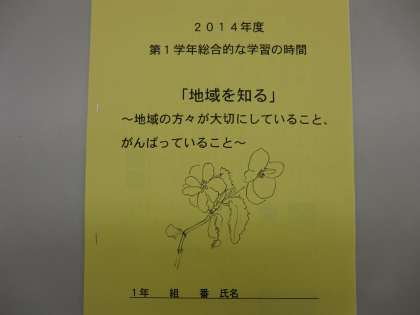 ２０１４年度
第１学年総合的な学習の時間
「地域を知る」
～地域の方々が大切にしていること、
がんばっていること～
１年　組　番　氏名